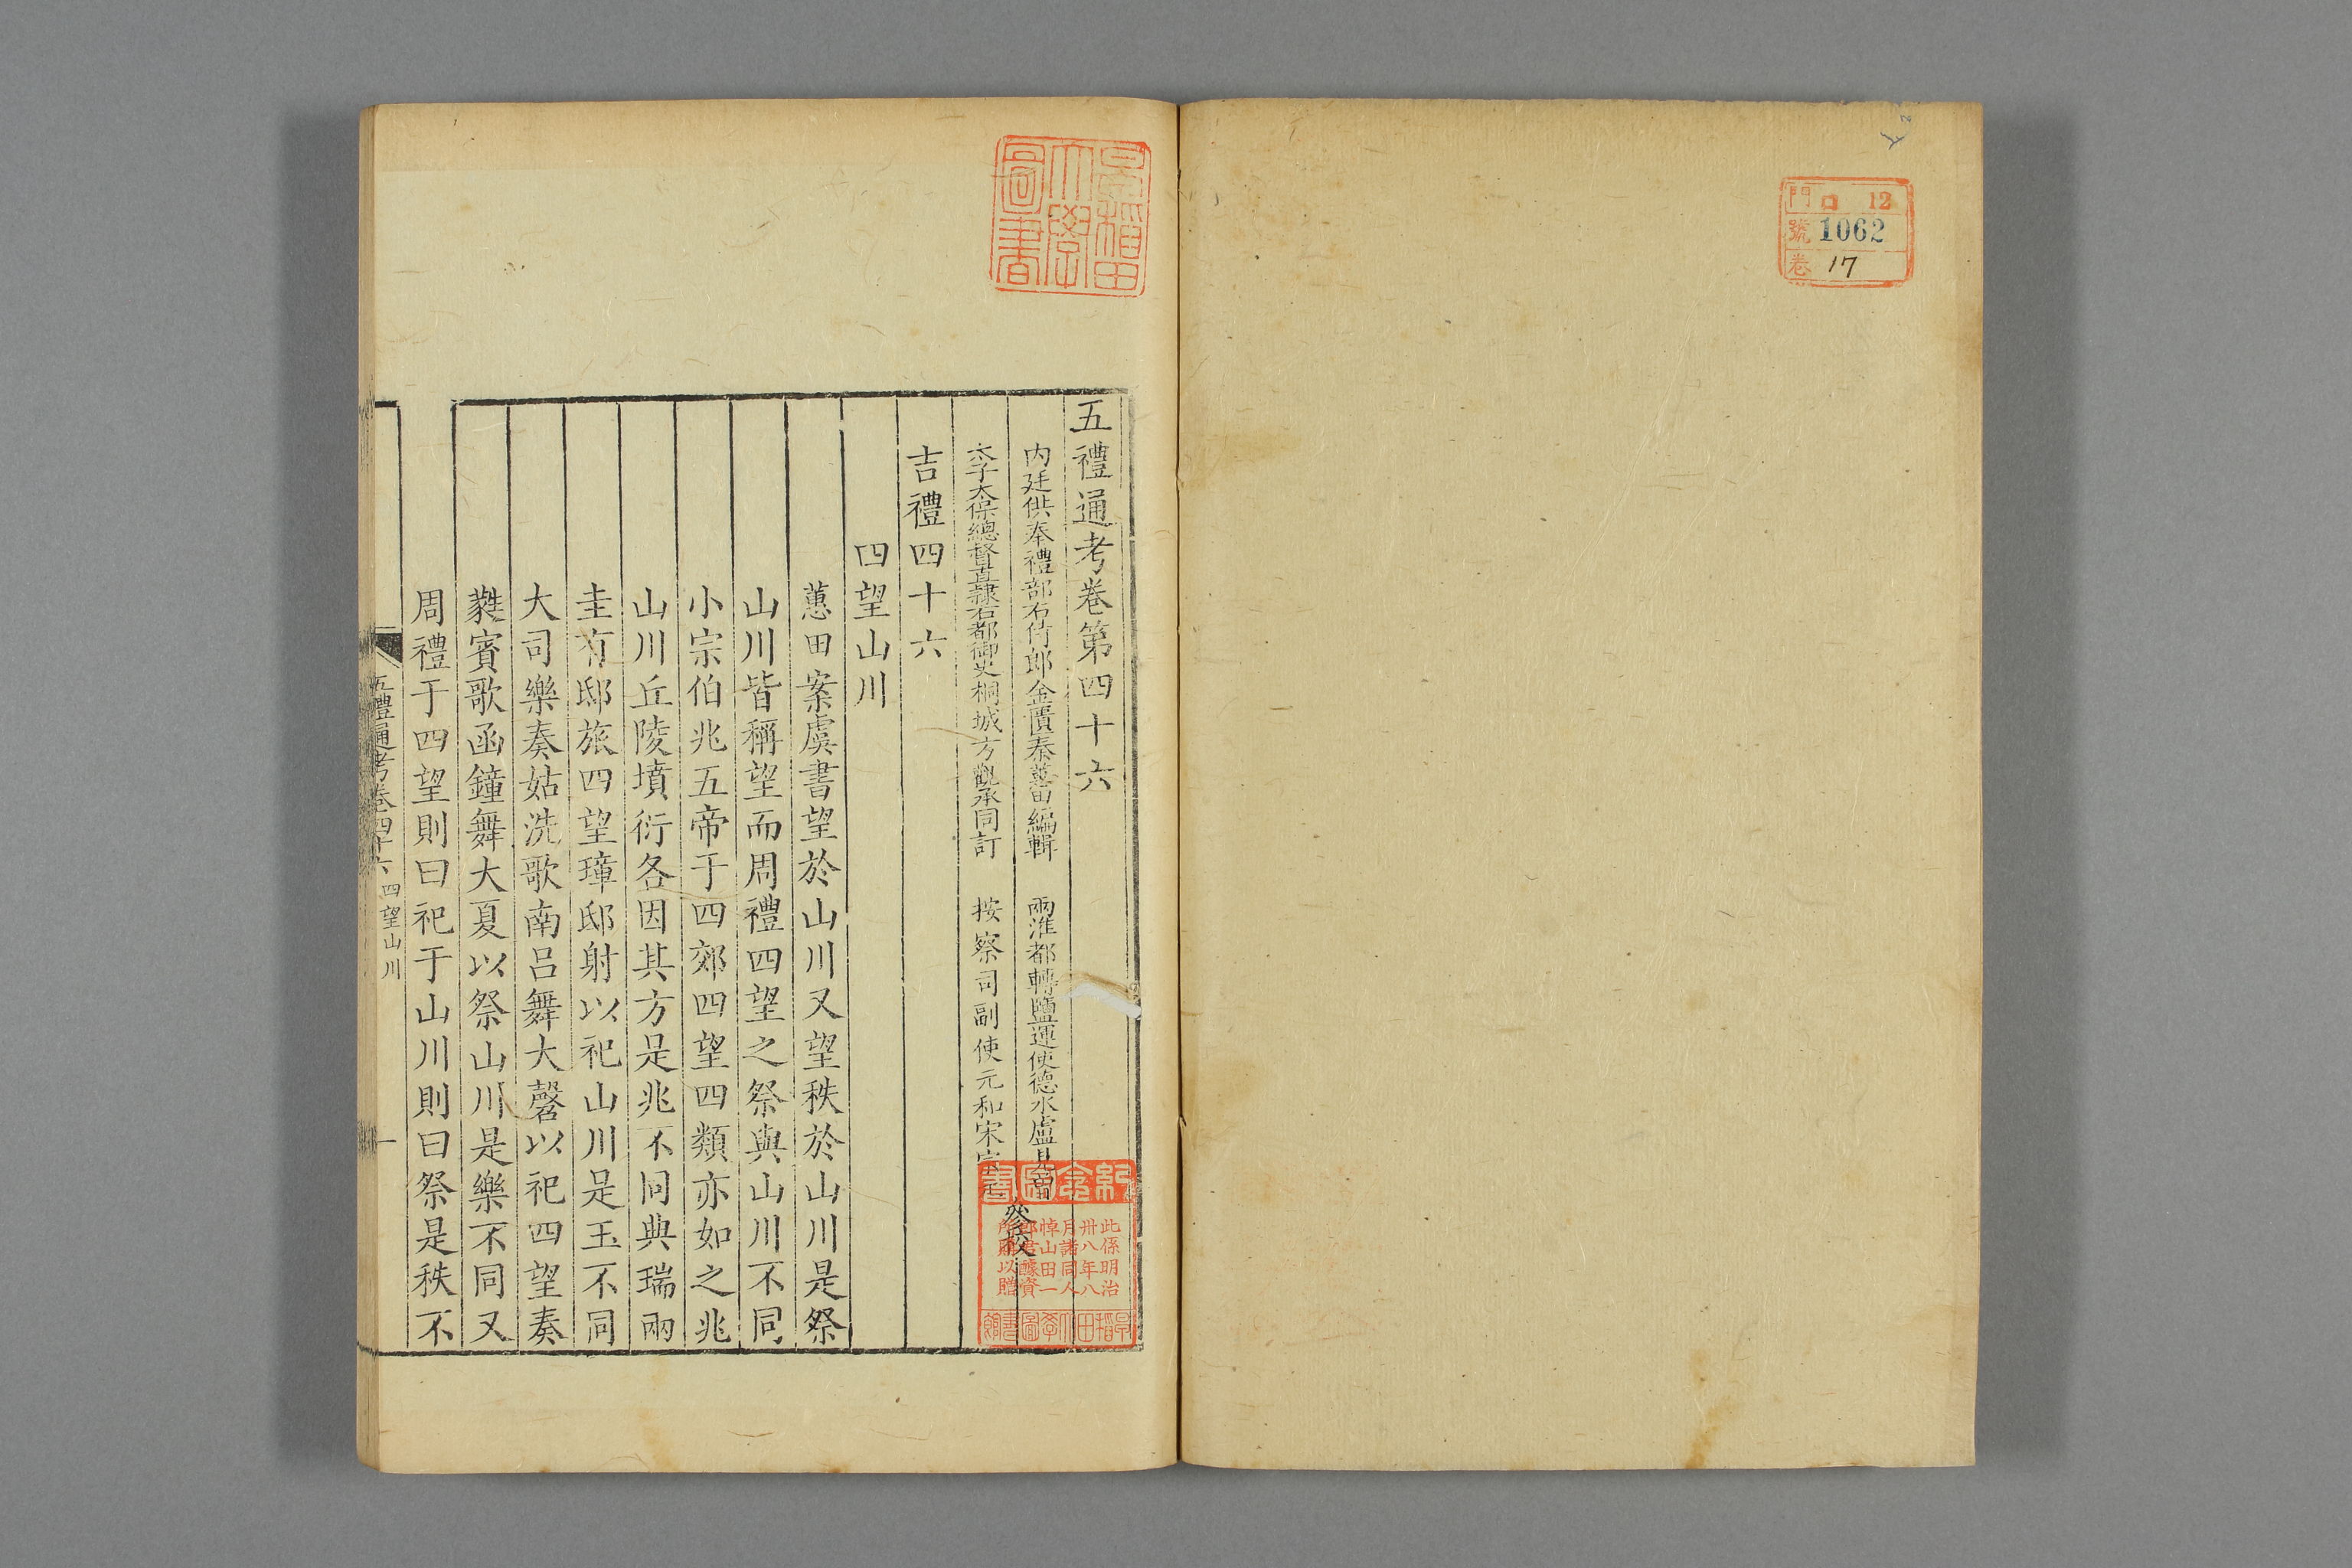 門 口 12
號 1062
卷 17
早稲田
大學
圖書
五禮通考卷第四十六
内廷供奉禮部右侍郎金匱秦蕙田編輯 兩淮都轉鹽運使德水盧見曾
太子太保總督直隷右都御史桐城方觀承同訂 按察司副使元和宋宗元
參校
吉禮四十六
四望山川
蕙田案虞書望於山川又望秩於山川是祭
山川皆稱望而周禮四望之祭與山川不同
小宗伯兆五帝于四郊四望四類亦如之兆
山川丘陵墳衍各因其方是兆不同典瑞兩
圭有邸旅四望璋邸射以祀山川是玉不同
大司樂奏姑洗歌南呂舞大磬以祀四望奏
蕤賓歌函鐘舞大夏以祭山川是樂不同又
周禮于四望則曰祀于山川則曰祭是秩不
五禮通考卷四十六 四望山川 一
紀念圖書
此係明治
卅八年八
月諸同人
悼山田一
郎君醵資
所購以贈
早稲田大學圖書館